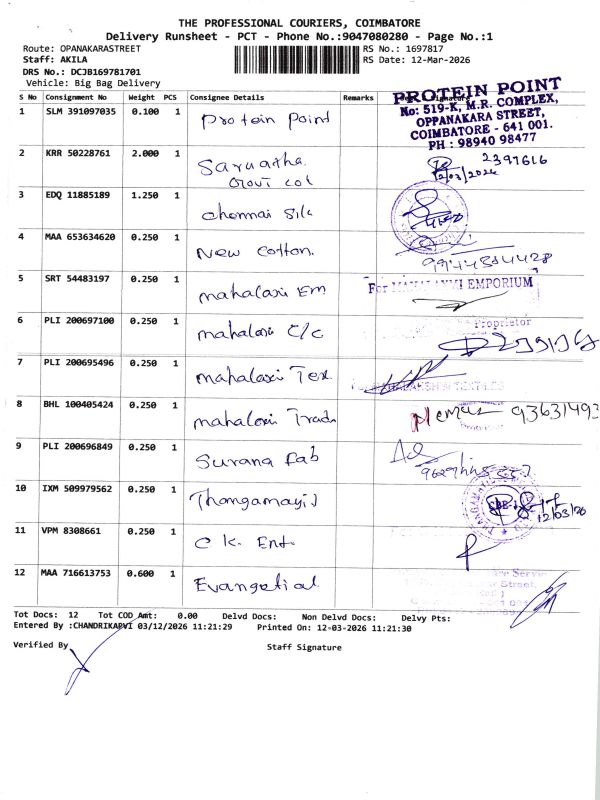 THE PROFESSIONAL COURIERS, COIMBATORE
Delivery Runsheet - PCT - Phone No.:9047080280 - Page No.:1
Route: OPANAKARASTREET
RS No.: 1697817
Staff: AKILA
RS Date: 12-Mar-2026
DRS No.: DCJB169781701
Vehicle: Big Bag Delivery
S No Consignment No Weight PCS Consignee Details Remarks
PROTEIN POINT
No: 519-K, M.R. COMPLEX,
OPPANAKARA STREET,
COIMBATORE - 641 001.
PH : 98940 98477
1 SLM 391097035 0.100 1 Protein Point
2 KRR 50228761 2.000 1 2397616
12/03/2026
3 EDQ 11885189 1.250 1 chennai Silk
4 MAA 653634620 0.250 1 New Cotton.
5 SRT 54483197 0.250 1 mahalaxi Em
For MAHALAXMI EMPORIUM
Proprietor
6 PLI 200697100 0.250 1 mahalaxi C/c
7 PLI 200695496 0.250 1 mahalaxi Tex
8 BHL 100405424 0.250 1 mahalaxi Trad
9 PLI 200696849 0.250 1 Surana fab
10 IXM 509979562 0.250 1 Thangamayil
12/03/26
11 VPM 8308661 0.250 1 C K. Ent.
12 MAA 716613753 0.600 1 Evangetial
Tot Docs: 12 Tot COD Amt: 0.00 Delvd Docs: Non Delvd Docs: Delvy Pts:
Entered By :CHANDRIKAPVI 03/12/2026 11:21:29 Printed On: 12-03-2026 11:21:30
Verified By
Staff Signature